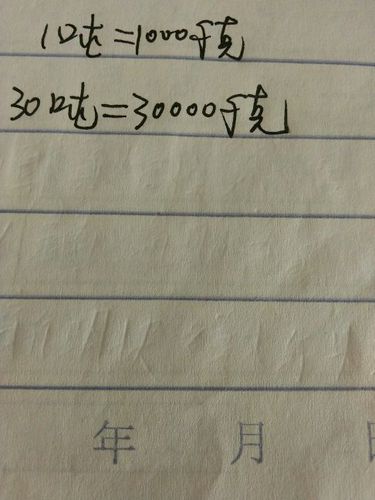 1吨=1000千克
30吨=30000千克
年 月 日